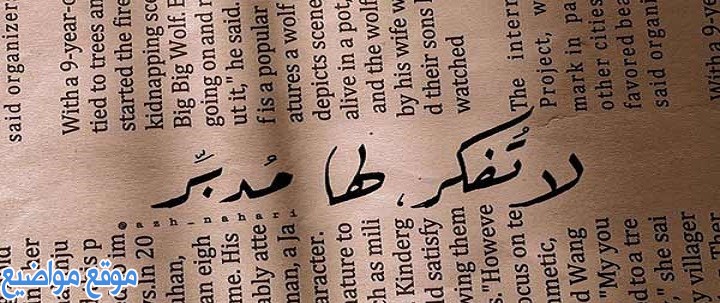 لا تُفكر، لها مُدبِّر
said organizer
With a 9-year-o
tied to trees an
started the fire
kidnapping sc
Big Big Wolf. E
going on and r
ut it," he said.
f is a popular
atures a wolf
depicts scene
alive in a pot,
and the wolf
by his wife w
d their sons
watched
The interr
Project, w
mark in pa
other cities
favored bea
said organi
With a 9-ye
ber
anju
In 20
ahan,
an eigh
me. His
ably atte
nan, a Ja
aracter.
nature to
ch as mili
Kinderg
d satisfy
wing them
s. "Howeve
ocus on te
ametic,
d Wang
"My you
d to a tre
" she sai
y villager
The
موقع مواضيع